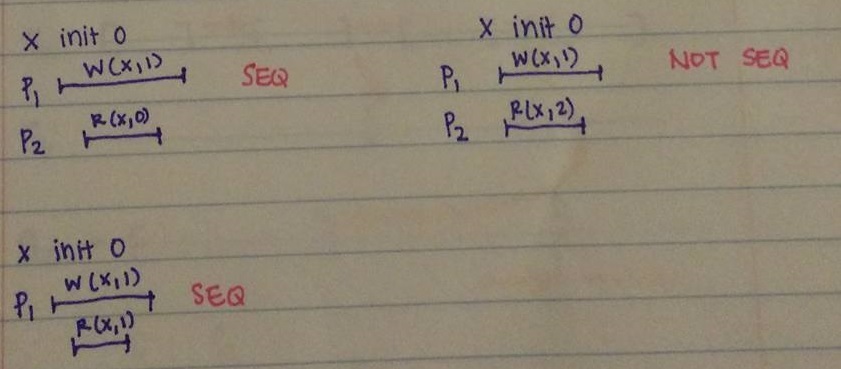 X init 0
P1 W(X,1) SEQ
P2 R(X,0)
X init 0
P1 W(X,1) NOT SEQ
P2 R(X,2)
X init 0
P1 W(X,1) SEQ
R(X,1)